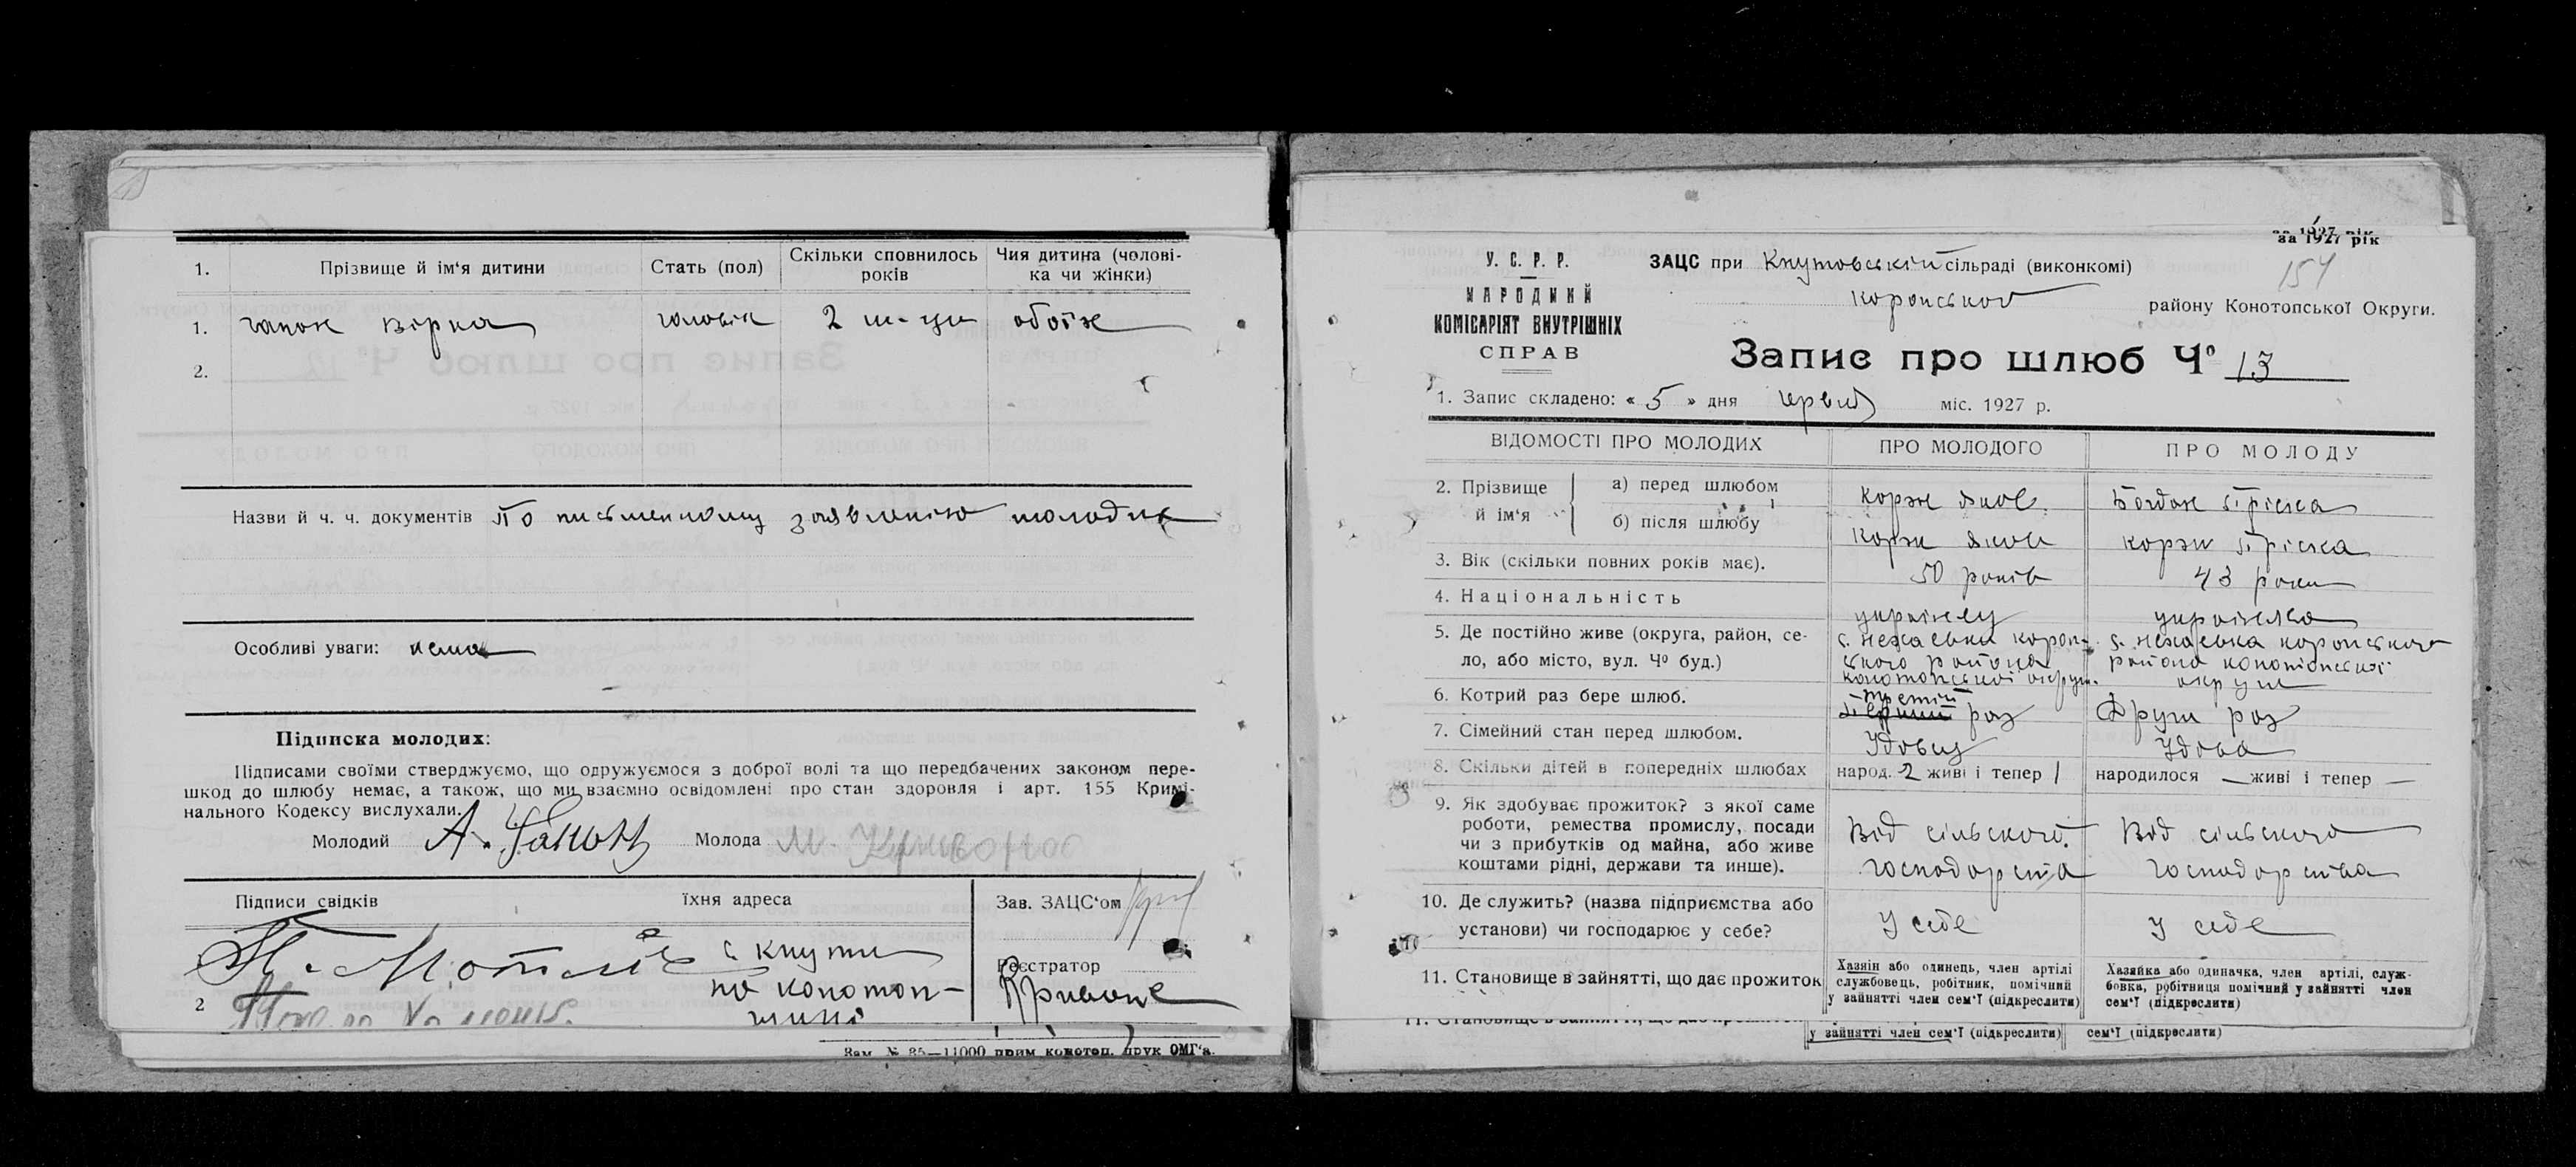 1. Прізвище й ім'я дитини Стать (пол) Скільки сповнилось років Чия дитина (чоловіка чи жінки)
1. чапок вірка чоловік 2 м-ци обоїх
2.
Назви й ч. ч. документів По письменному заявленію молодих
Особливі уваги: нема
Підписка молодих:
Підписами своїми стверджуємо, що одружуємося з доброї волі та що передбачених законом пере-
шкод до шлюбу немає, а також, що ми взаємно освідомлені про стан здоровля і арт. 155 Кримі-
нального Кодексу вислухали.
Молодий А. Чапок Молода М. Кривонос
Підписи свідків їхня адреса Зав. ЗАЦС'ом
с. кнути
Реєстратор
на конотоп-
щині
2
Зам. № 85—11000 прим конотоп. друк ОМГ'а.
за 1927 рік
за 1927 рік
У. С. Р. Р.
НАРОДНИЙ
КОМІСАРІЯТ ВНУТРІШНІХ
СПРАВ
ЗАЦС при Кнутовській сільраді (виконкомі)
154
коропського району Конотопської Округи.
Запис про шлюб Ч° 13
1. Запис складено: « 5 » дня червня міс. 1927 р.
ВІДОМОСТІ ПРО МОЛОДИХ ПРО МОЛОДОГО ПРО МОЛОДУ
2. Прізвище й ім'я а) перед шлюбом Корж яков Богдан Пріска
б) після шлюбу Корж яков корж Пріска
3. Вік (скільки повних років має). 50 років 43 роки
4. Національність українец українка
5. Де постійно живе (округа, район, се-
ло, або місто, вул. Ч° буд.)
с. нехаевка короп-
ського района
конотопської округи.
с. нехаевка коропського
района конотопської
округи
6. Котрий раз бере шлюб. третій перший раз Други раз
7. Сімейний стан перед шлюбом. Удовец Удова
8. Скільки дітей в попередніх шлюбах народ. 2 живі і тепер 1 народилося — живі і тепер —
9. Як здобуває прожиток? з якої саме
роботи, ремества промислу, посади
чи з прибутків од майна, або живе
коштами рідні, держави та инше).
Від сільского
господарста
Від сільского
господарства
10. Де служить? (назва підприємства або
установи) чи господарює у себе?
У себе
У себе
11. Становище в зайнятті, що дає прожиток
Хазяїн або одинець, член артілі
службовець, робітник, помічний
у зайнятті член сем'ї (підкреслити)
Хазяйка або одиначка, член артілі, служ-
бовка, робітниця помічний у зайнятті член
сем'ї (підкреслити)
11. Становище в зайнятті, що дає прожиток
у зайнятті член сем'ї (підкреслити) сем'ї (підкреслити)